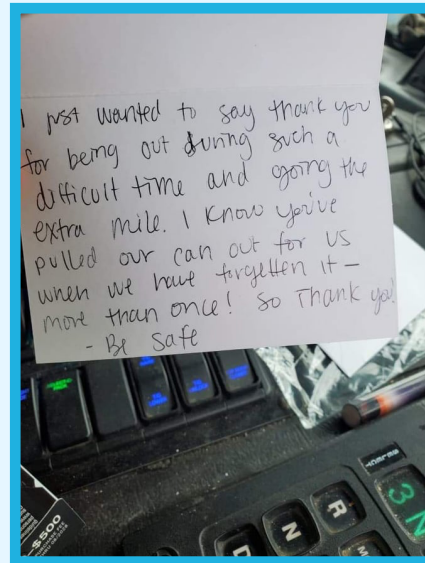 I just wanted to say thank you
for being out during such a
difficult time and going the
extra mile. I know you've
pulled our can out for us
when we have forgetten it –
more than once! So Thank you!
- Be Safe
$500
R
N
D
3 N